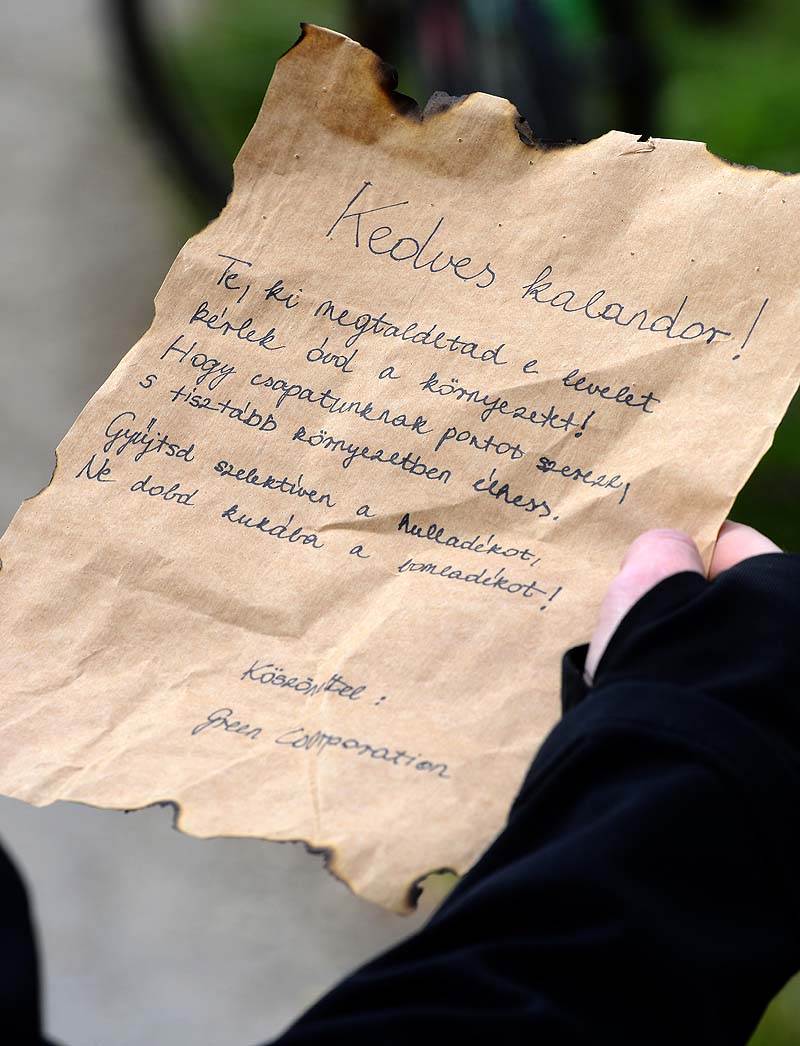 Kedves kalandor!
Te, ki megtaláltad e levelet
kérlek óvd a környezetet!
Hogy csapatunknak pontot szerezz,
s tisztább környezetben élhess.
Gyűjtsd szelektíven a hulladékot,
Ne dobd kukába a bomladékot!
Köszönettel:
Green Corporation